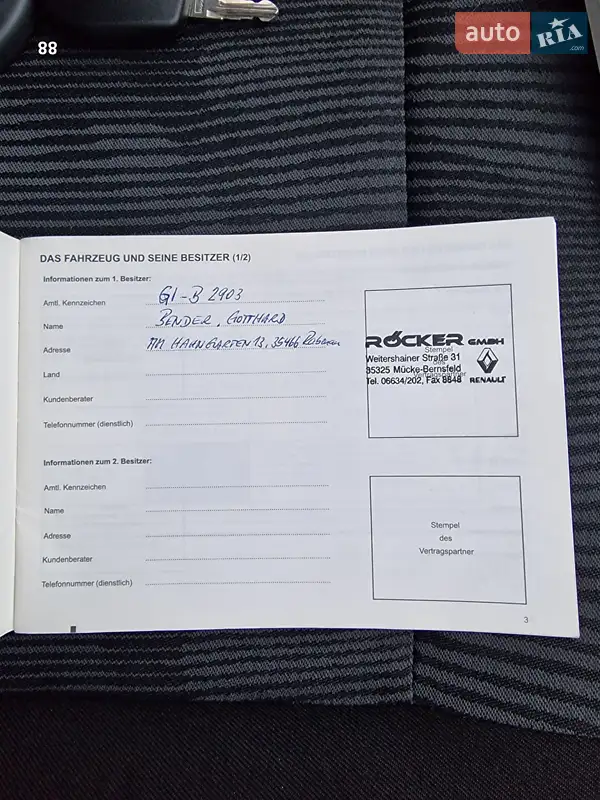 88
auto RIA .com
DAS FAHRZEUG UND SEINE BESITZER (1/2)
Informationen zum 1. Besitzer:
Amtl. Kennzeichen GI-B 2903
Name BENDER, GOTTHARD
Adresse AM HAHNGARTEN 13, 35466
Land
Kundenberater
Telefonnummer (dienstlich)
RÖCKER GMBH
Stempel
Weitershainer Straße 31
des
35325 Mücke-Bernsfeld
Vertragspartner
Tel. 06634/202, Fax 8848
RENAULT
Informationen zum 2. Besitzer:
Amtl. Kennzeichen
Name
Adresse
Kundenberater
Telefonnummer (dienstlich)
Stempel
des
Vertragspartner
3